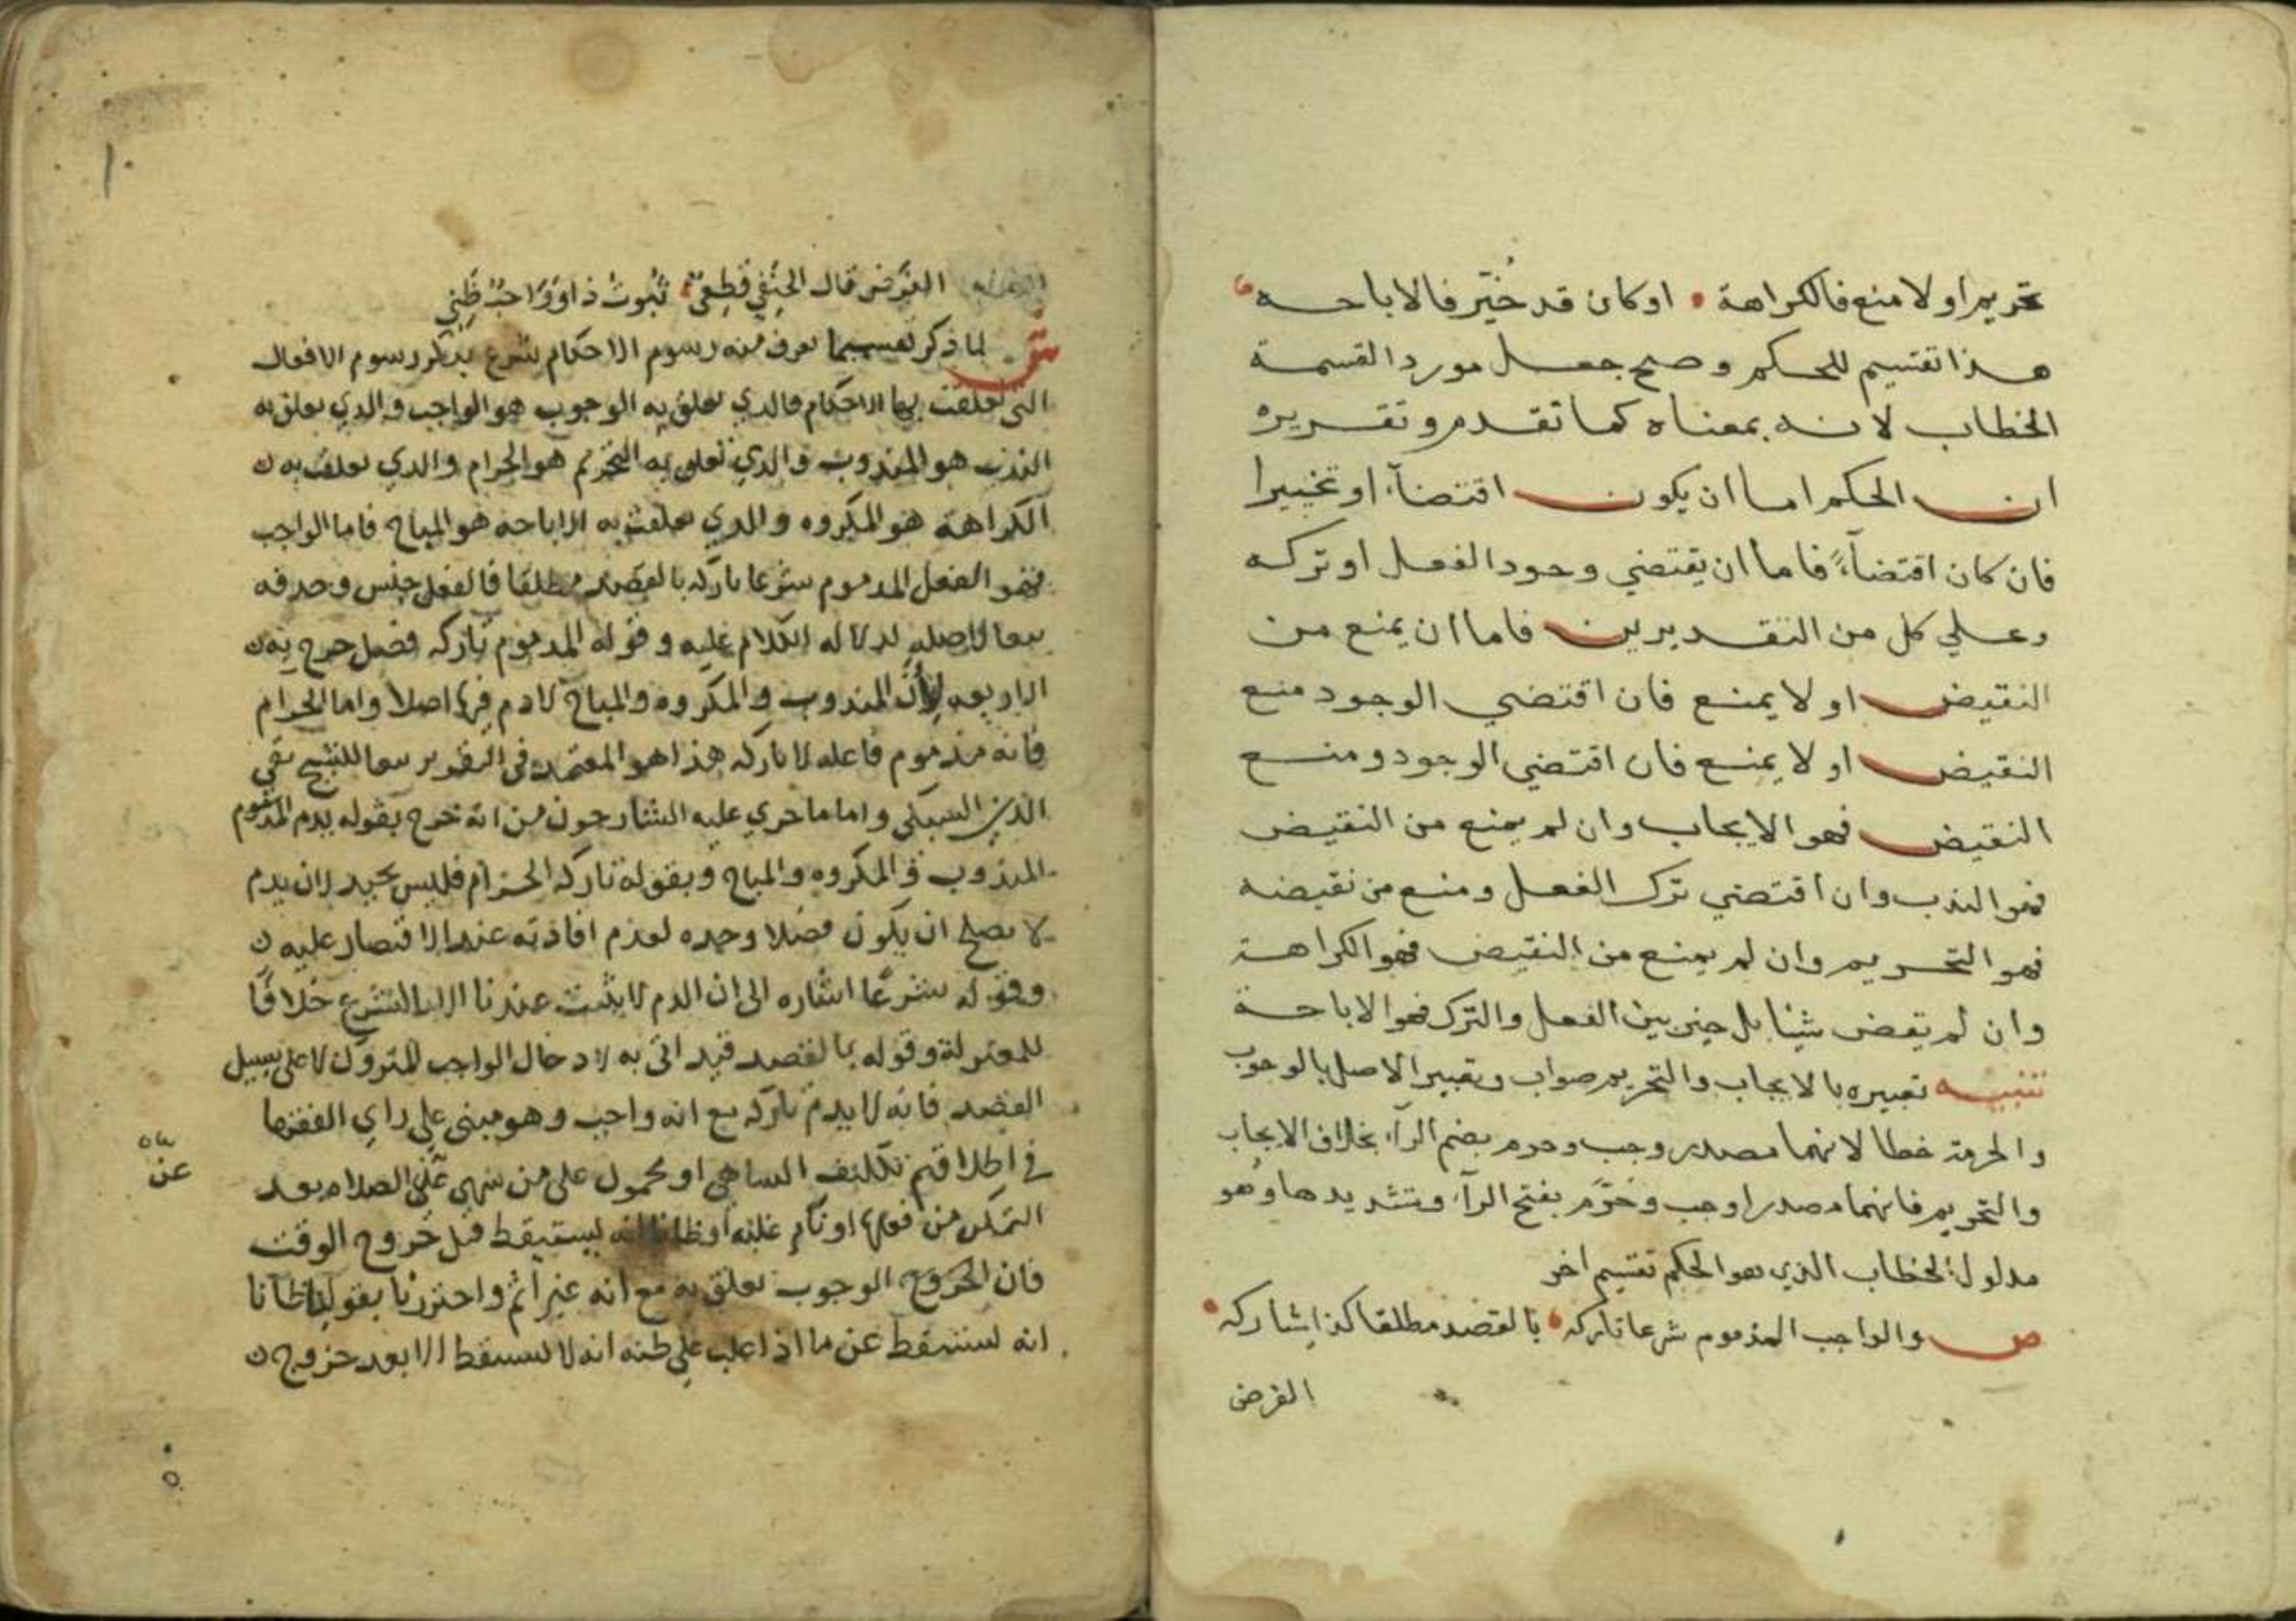 تحريم او لا منع فالكراهة • او كان قد خُيّر فالاباحه
هذا تقسيم للحكم وصح جعل مورد القسمة
الخطاب لانه بمعناه كما تقدم وتقريره
ان الحكم اما ان يكون اقتضآء او تخييرا
فان كان اقتضآءً فاما ان يقتضي وجود الفعل او تركه
وعلي كل من التقديرين فاما ان يمنع من
النقيض او لا يمنع فان اقتضي الوجود منع
النقيض او لا يمنع فان اقتضي الوجود ومنع
النقيض فهو الايجاب وان لم يمنع من النقيض
فهو الندب وان اقتضي ترك الفعل ومنع من نقيضه
فهو التحريم وان لم يمنع من النقيض فهو الكراهة
وان لم يقض شيئا بل خير بين الفعل والترك فهو الاباحة
تنبيه تعبيره بالايجاب والتحريم صواب وتعبير الاصل بالوجوب
والحرمة خطا لانهما مصدر وجب وحرم بضم الرآء بخلاف الايجاب
والتحريم فانهما مصدر اوجب وحَرَّم بفتح الرآء وتشديدها وهو
مدلول الخطاب الذي هو الحكم تقسيم اخر
ص والواجب المذموم شرعا تاركه • بالقصد مطلقا كذا يشاركه •
الفرض
١٠
الفرض قال الحنفي قطعي ثبوت ذا وواجب ظني
ش لما ذكر تقسيما يعرف منه رسوم الاحكام شرع يذكر رسوم الافعال
التي تعلقت بها الاحكام فالذي تعلق به الوجوب هو الواجب والذي تعلق به
الندب هو المندوب والذي تعلق به التحريم هو الحرام والذي تعلقت به
الكراهة هو المكروه والذي تعلقت به الاباحة هو المباح فاما الواجب
فهو الفعل المذموم شرعا تاركه بالقصد مطلقا فالفعل جنس وحذفه
تبعا لاصله لدلالة الكلام عليه وقوله المذموم تاركه فصل خرج به
الاربعه لان المندوب والمكروه والمباح لا ذم فيها اصلا واما الحرام
فانه مذموم فاعله لا تاركه هذا هو المعتمد في التقرير تبعا للشيخ تقي
الدين السبكي واما ما جري عليه الشارحون من انه خرج بقوله يذم المذموم
المندوب والمكروه والمباح وبقوله تاركه الحرام فليس بجيد لان يذم
لا يصلح ان يكون فصلا وحده لعدم افادته عند الاقتصار عليه
وقوله شرعًا اشاره الى ان الذم لا يثبت عندنا الا بالشرع خلافًا
للمعتزلة وقوله بالقصد قيد اتى به لادخال الواجب المتروك لا على سبيل
القصد فانه لا يذم تاركه مع انه واجب وهو مبنى على راي الفقها
في اطلاقهم تكليف الساهي او محمول على من سهي عن الصلاه بعد
التمكن من فعلها او نام غلبه او ظانا انه يستيقظ قبل خروج الوقت
فان الخروج الوجوب تعلق به مع انه غير اثم واحترزنا بقولنا ظانا
انه يستيقظ عن ما اذا غلب علي ظنه انه لا يستيقظ الا بعد خروج
عن